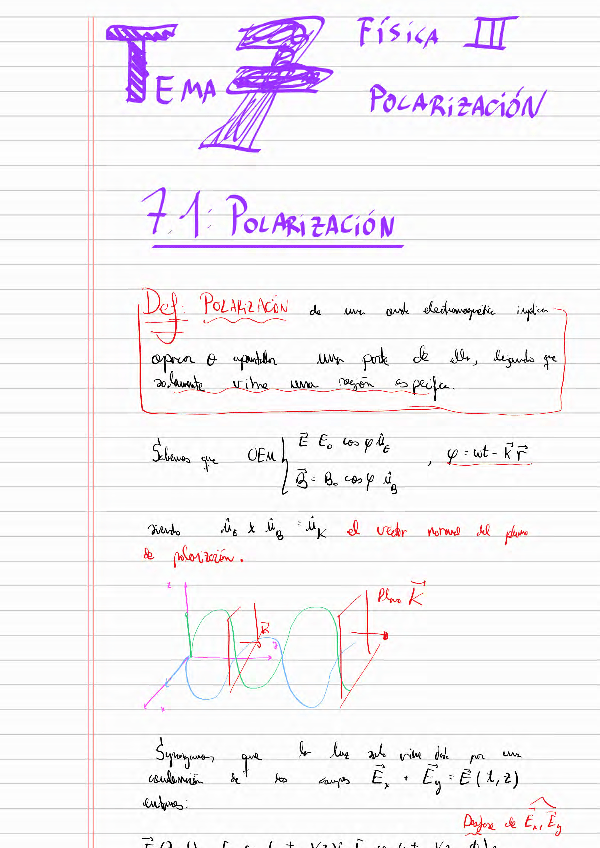 TEMA 7 FÍSICA III
POLARIZACIÓN
7.1: POLARIZACIÓN
Def: POLARIZACIÓN de una onda electromagnética implica
una parte de ella,
solamente vibre una región específica.
Sabemos que OEM { E⃗ E₀ cos φ û_E
B⃗ = B₀ cos φ û_B , φ = ωt - k⃗ r⃗
siendo û_E x û_B = û_K el vector normal del plano
de polarización.
Plano K⃗
z
x
Supongamos que la luz solo vibre por una
combinación de los campos E⃗x + E⃗y = E⃗(t, z)
entonces:
Desfase de E⃗x, E⃗y